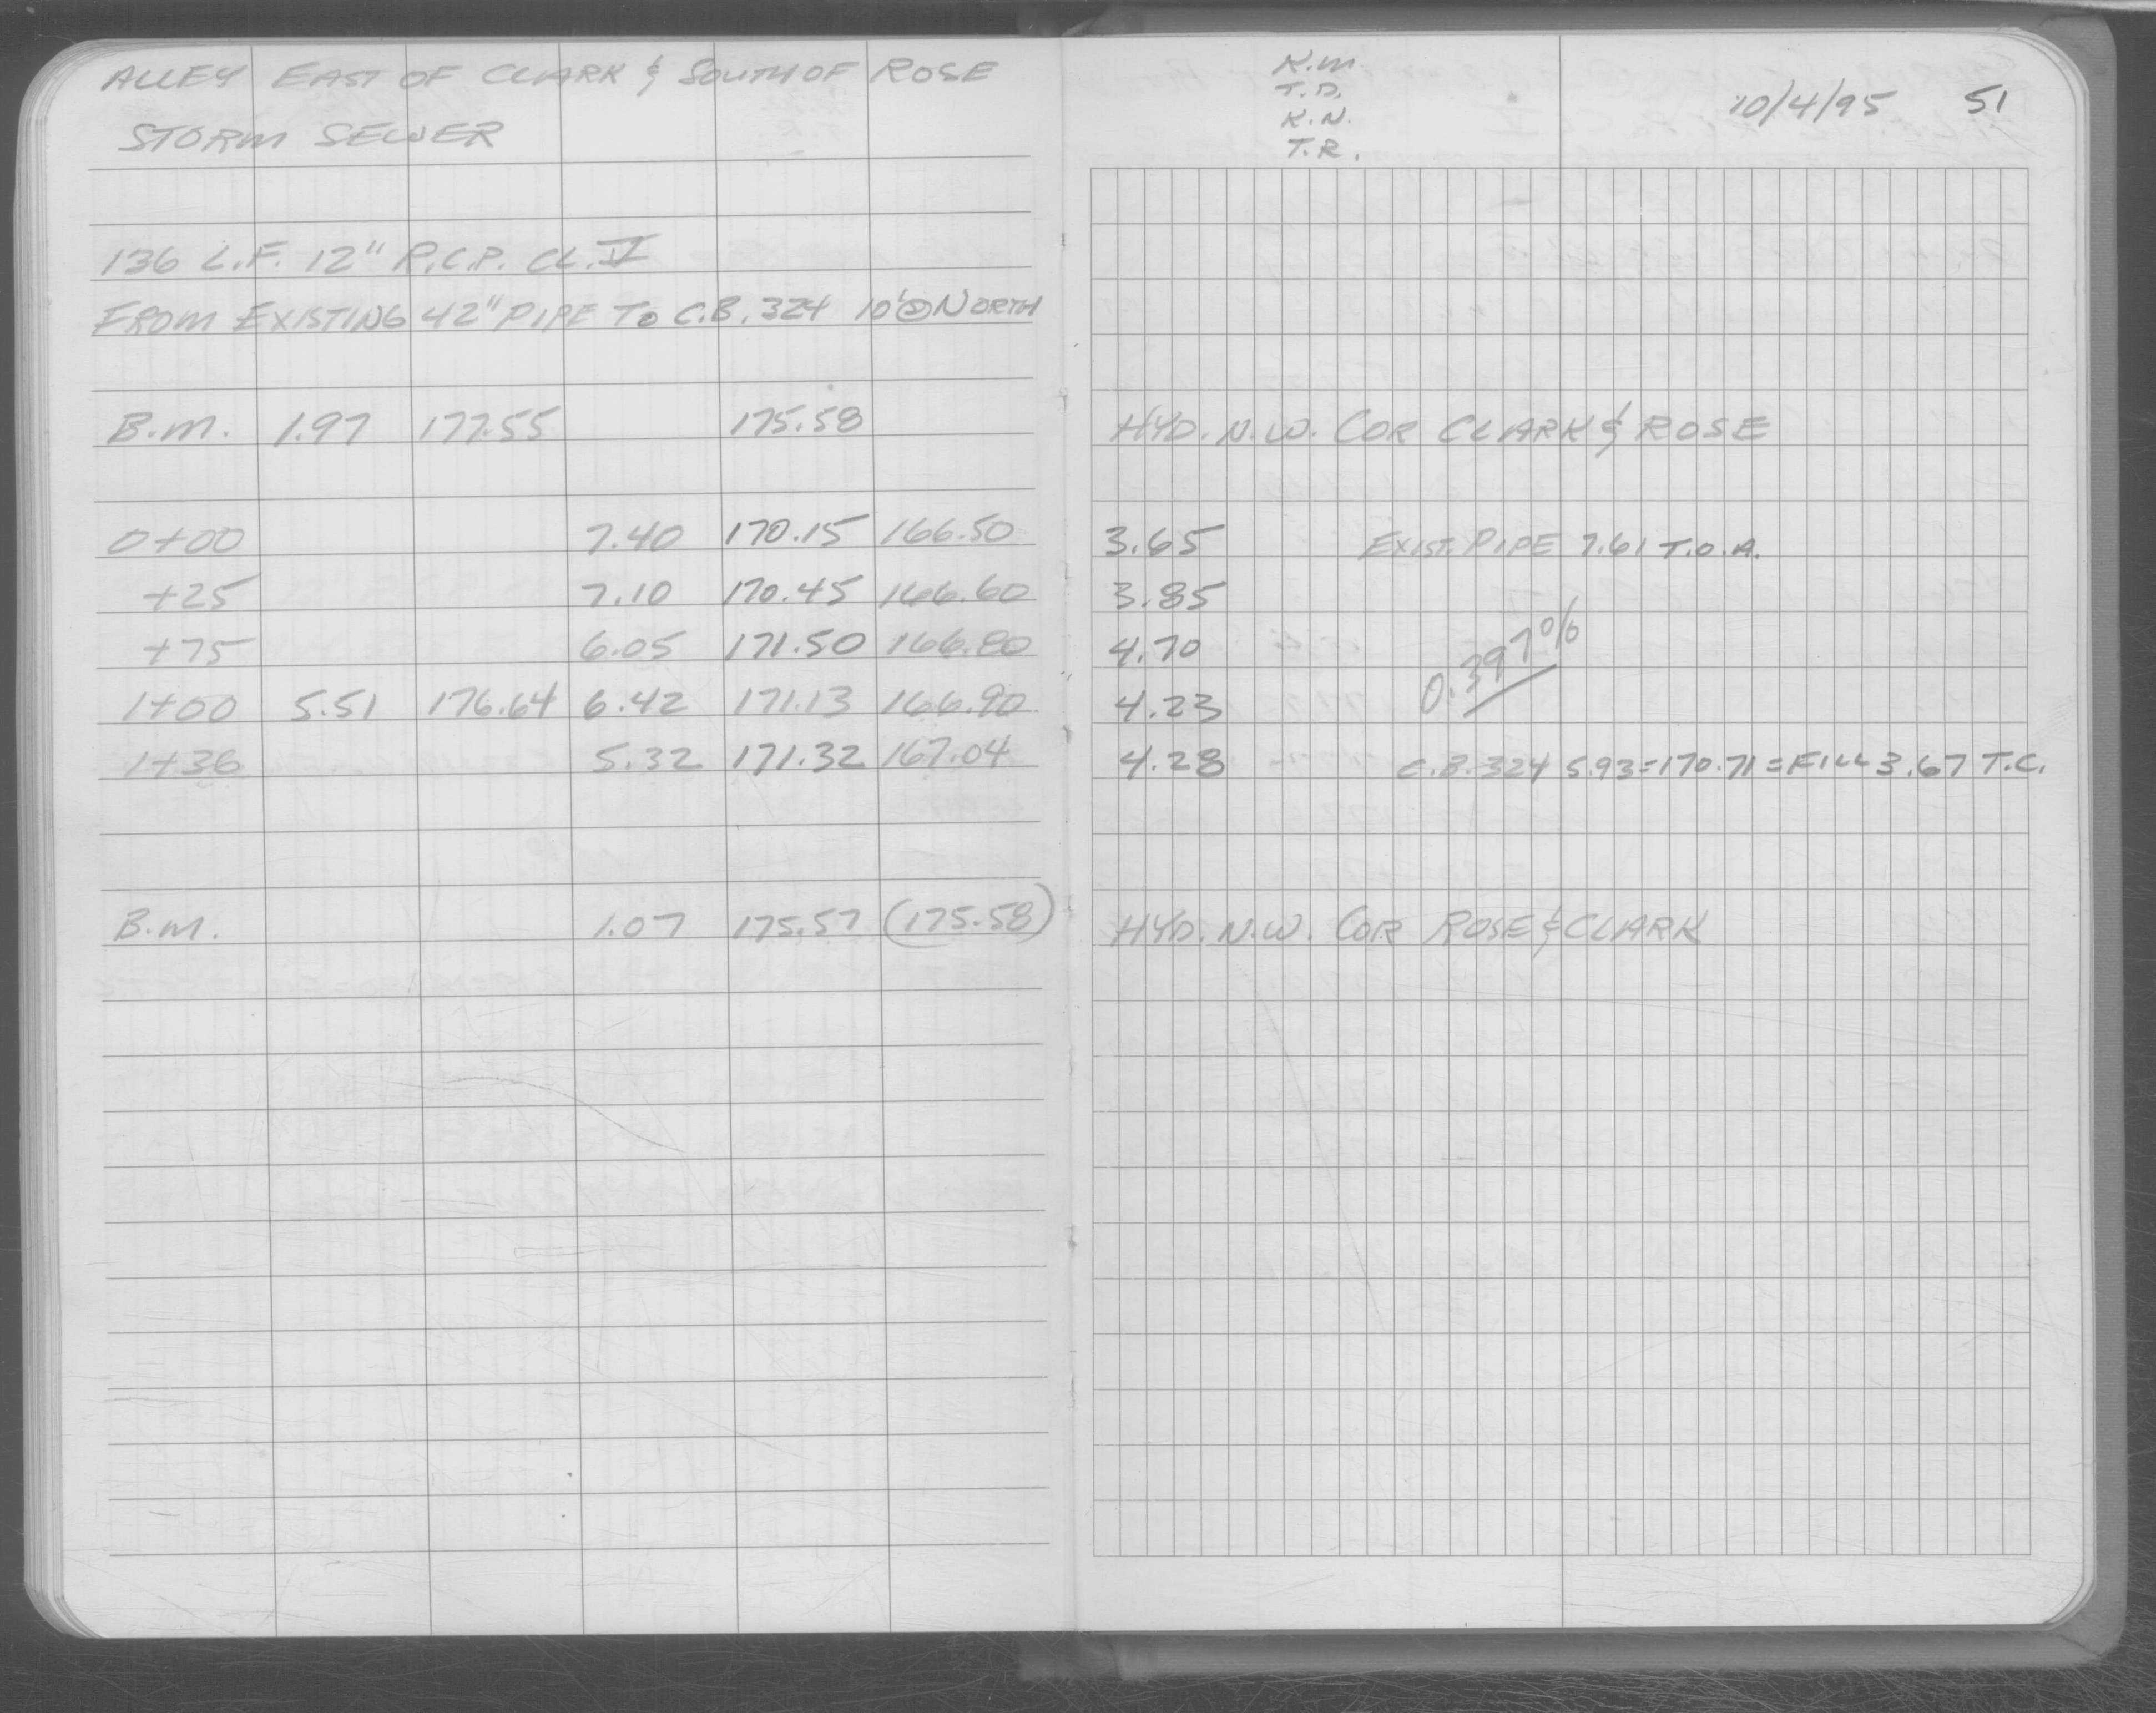 ALLEY EAST OF CLARK & SOUTH OF ROSE
STORM SEWER
136 L.F. 12" R.C.P. CL. V
FROM EXISTING 42" PIPE TO C.B. 324 10' NORTH
B.M. 1.97 177.55 175.58
0+00 7.40 170.15 166.50
+25 7.10 170.45 166.60
+75 6.05 171.50 166.80
1+00 5.51 176.64 6.42 171.13 166.90
1+36 5.32 171.32 167.04
B.M. 1.07 175.57 (175.58)
K.M.
T.D.
K.N.
T.R.
10/4/95 51
HYD. N.W. COR CLARK & ROSE
3.65 EXIST. PIPE 7.61 T.O.A.
3.85
4.70 0.397%
4.23
4.28 C.B. 324 5.93=170.71=FILL 3.67 T.C.
HYD. N.W. COR ROSE & CLARK